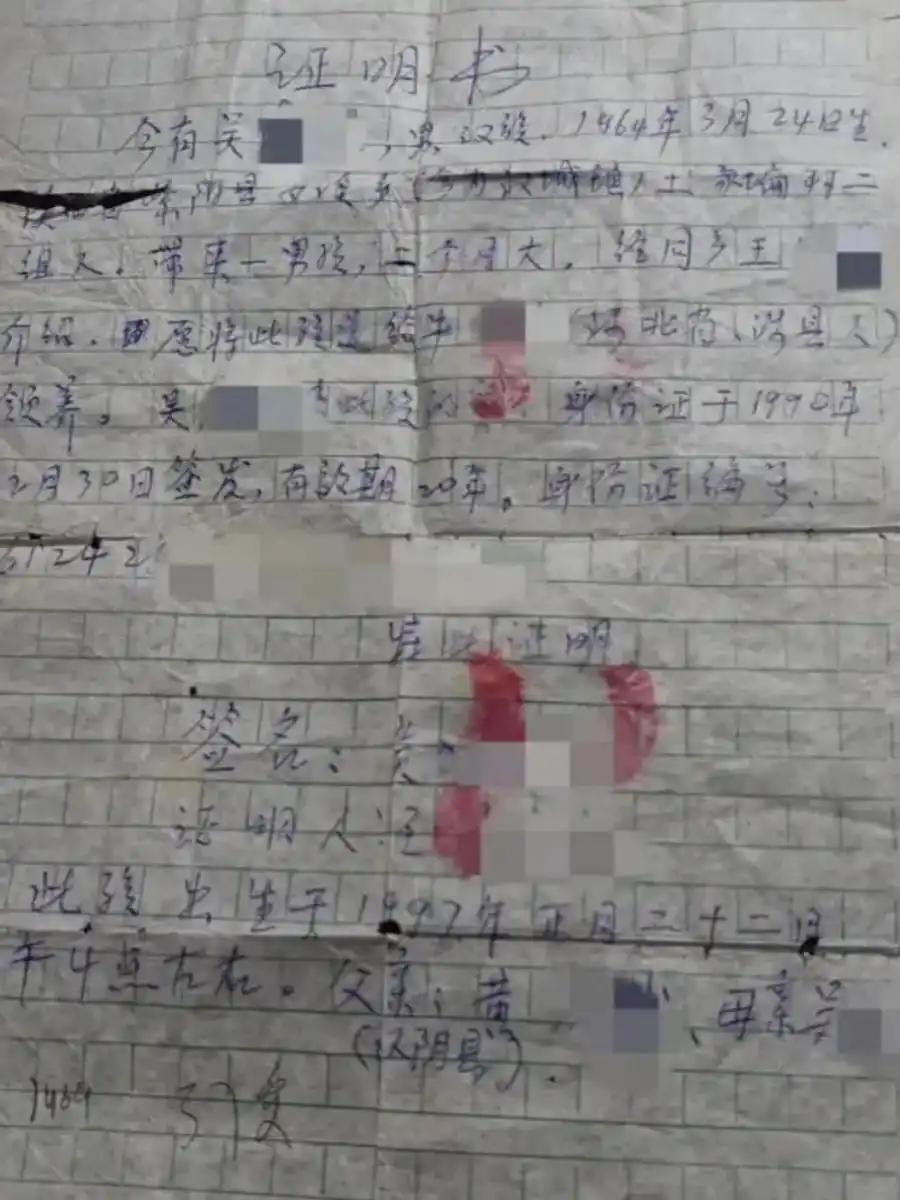 证明书
今有吴 ,男 汉族. 1964年3月24日生.
阴县 (今为汉城镇) 村二
组人. 带来一男孩,二个月大. 经同乡王
介绍. 愿将此孩送给牛 (河北省、涉县人)
领养。吴 此孩的 身份证于1990年
2月30日签发,有效期20年。身份证编号:
61242
特此证明
签名: 吴
证明人:王
此孩出生于1997年正月二十二日
午4点左右。父亲:黄 、母亲吴
(汉阴县).
1464